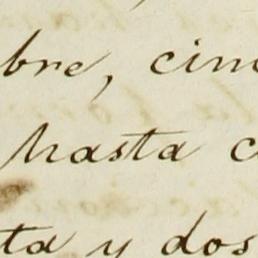 bre, cin
hasta c
ta y dos